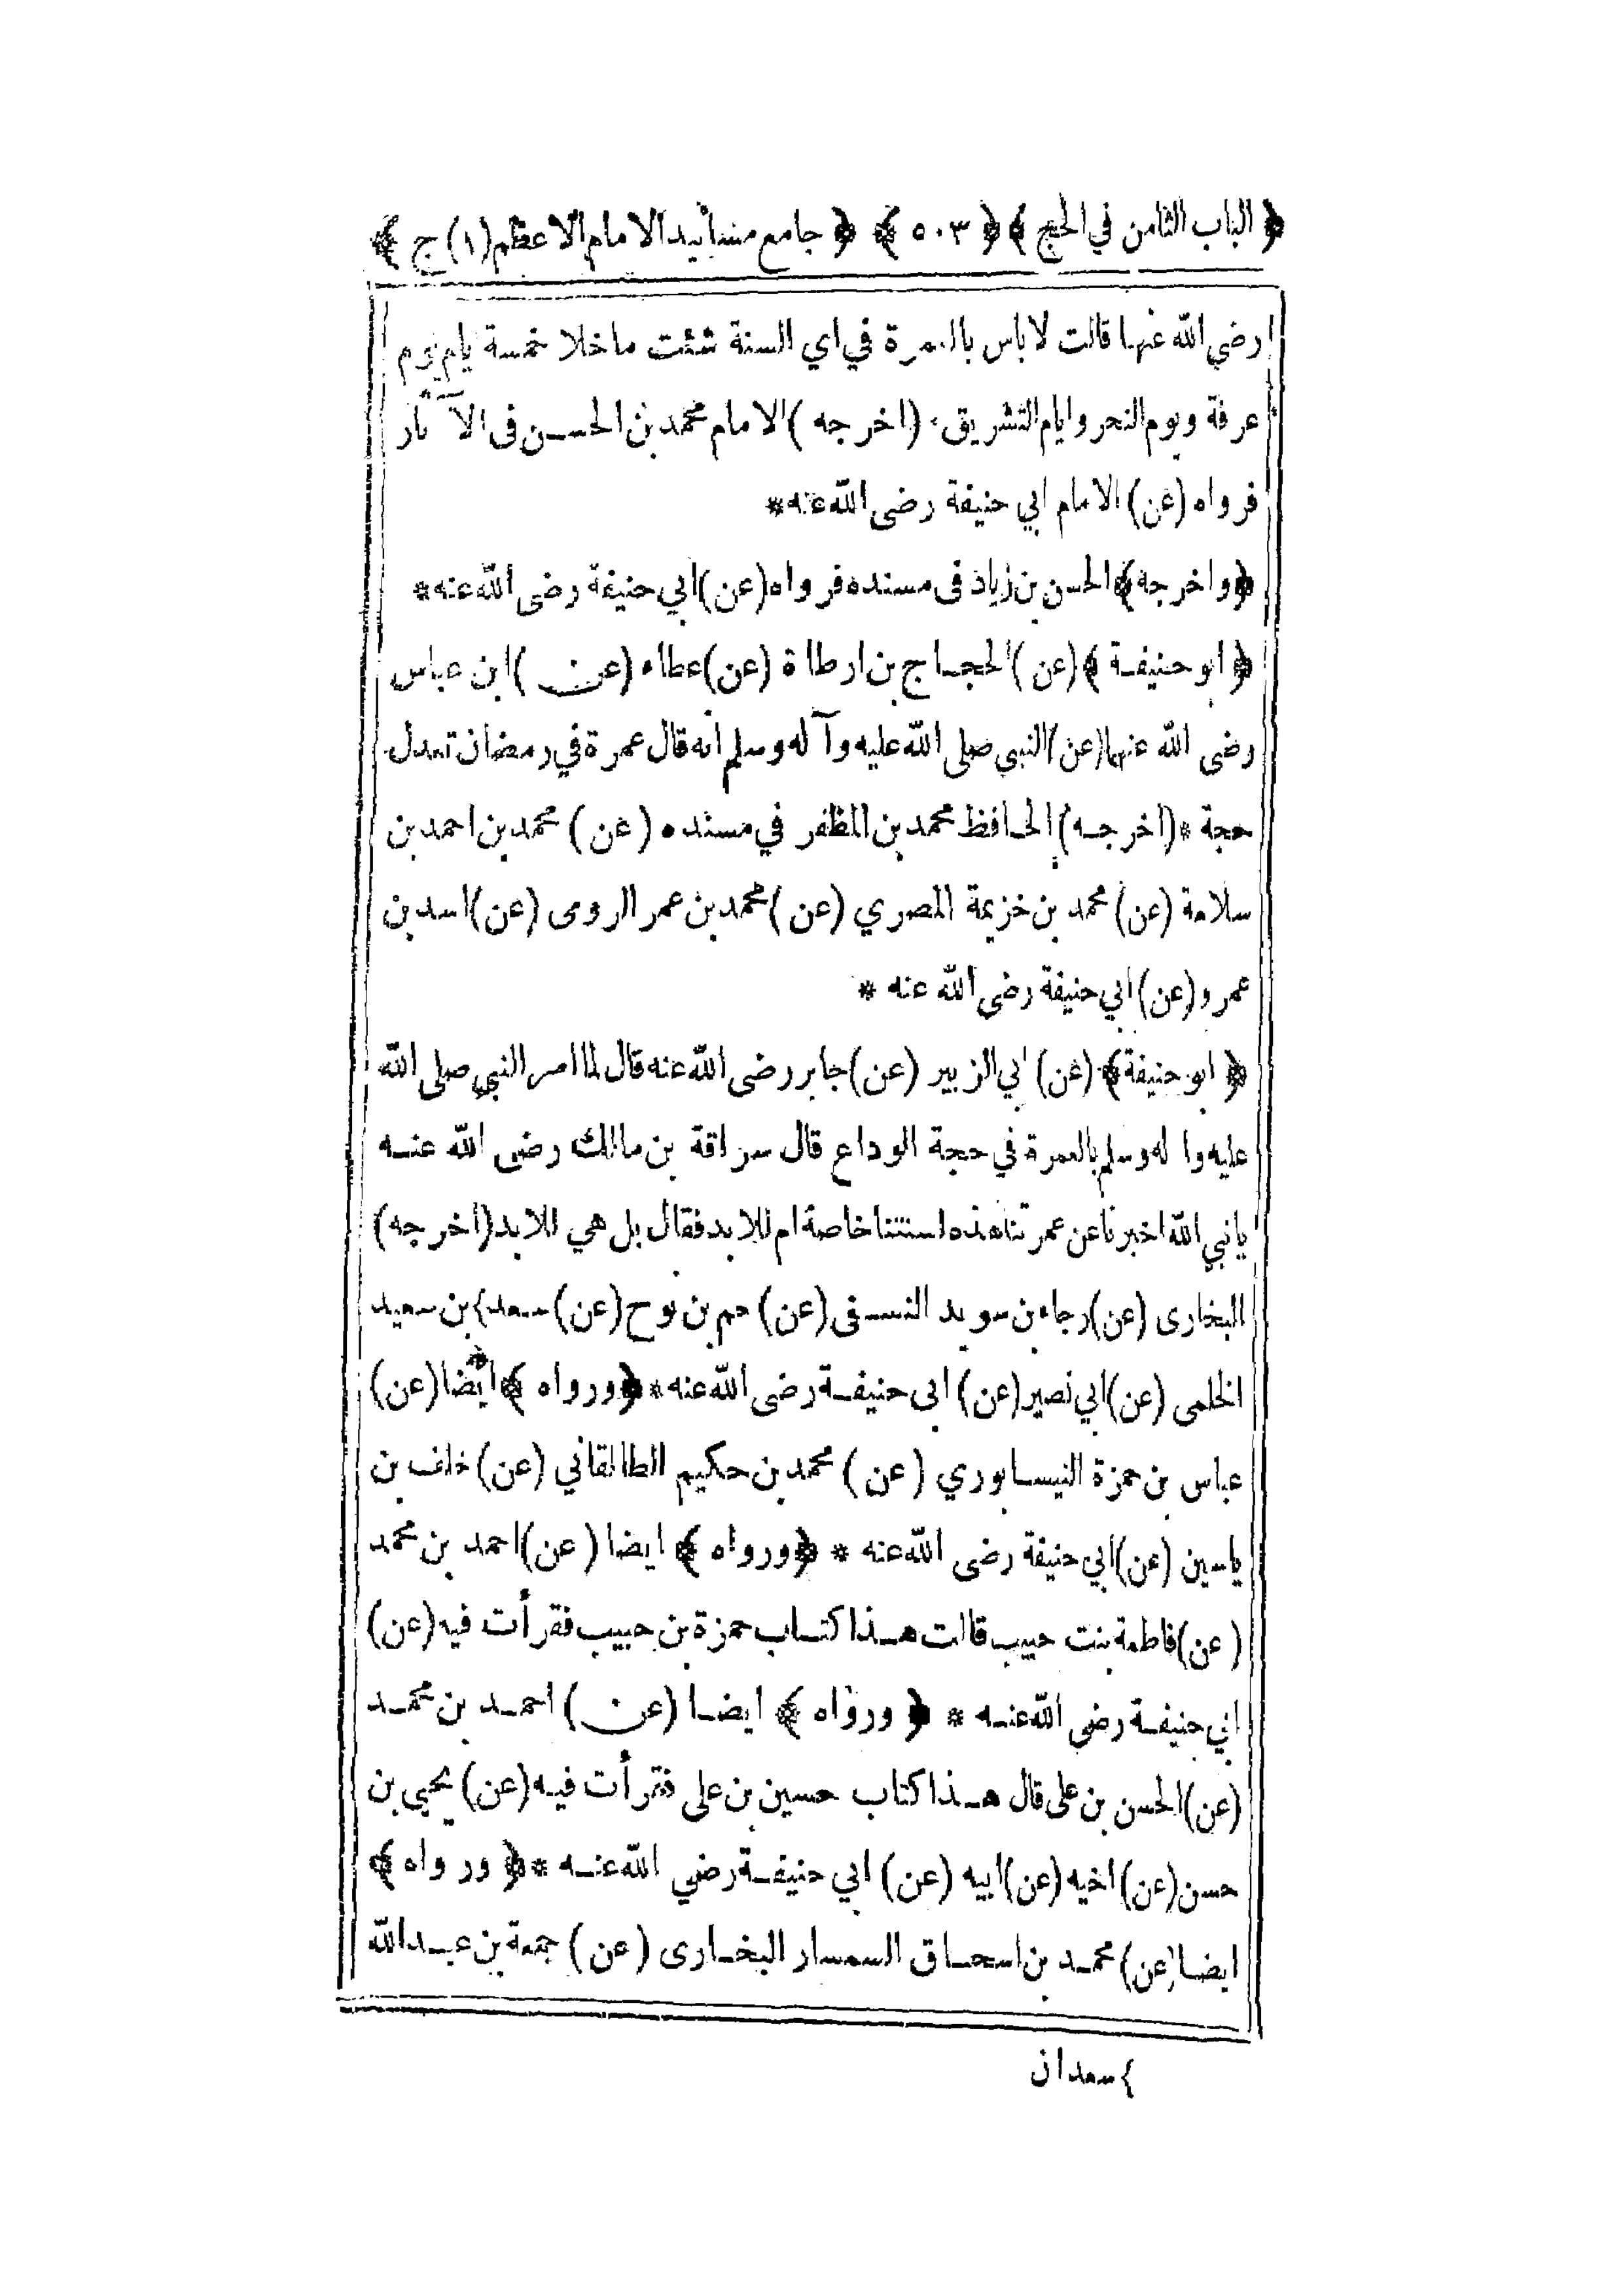 ﴿ الباب الثامن في الحج ﴾ ﴿ ٥٠٣ ﴾ ﴿ جامع مسانيد الامام الاعظم (١) ج ﴾
رضي الله عنها قالت لا باس بالعمرة في اي السنة شئت ما خلا خمسة ايام يوم
عرفة ويوم النحر وايام التشريق (اخرجه) الامام محمد بن الحسن فى الآثار
فرواه (عن) الامام ابي حنيفة رضى الله عنه *
﴿واخرجه﴾ الحسن بن زياد فى مسنده فرواه (عن) ابي حنيفة رضى الله عنه *
﴿ ابو حنيفة ﴾ (عن) الحجاج بن ارطاة (عن) عطاء (عن) ابن عباس
رضى الله عنهما (عن) النبي صلى الله عليه وآله وسلم انه قال عمرة في رمضان تعدل
حجة * (اخرجه) الحافظ محمد بن المظفر في مسنده (عن) محمد بن احمد بن
سلامة (عن) محمد بن خزيمة المصري (عن) محمد بن عمر الرومى (عن) اسد بن
عمرو (عن) ابي حنيفة رضى الله عنه *
﴿ ابو حنيفة ﴾ (عن) ابي الزبير (عن) جابر رضى الله عنه قال لما امر النبي صلى الله
عليه واله وسلم بالعمرة في حجة الوداع قال سراقة بن مالك رضى الله عنه
يا نبي الله اخبرنا عن عمرتنا هذه لسنتنا خاصة ام للابد فقال بل هي للابد (اخرجه)
البخارى (عن) رجاء بن سويد النسفى (عن) حم بن نوح (عن) سعد} بن سعيد
الخلمى (عن) ابي نصير (عن) ابى حنيفة رضى الله عنه * ﴿ورواه﴾ ايضا (عن)
عباس بن حمزة النيسابوري (عن) محمد بن حكيم الطالقاني (عن) خلف بن
ياسين (عن) ابي حنيفة رضى الله عنه * ﴿ورواه﴾ ايضا (عن) احمد بن محمد
(عن) فاطمة بنت حبيب قالت هذا كتاب حمزة بن حبيب فقرأت فيه (عن)
ابي حنيفة رضى الله عنه * ﴿ ورواه ﴾ ايضا (عن) احمد بن محمد
(عن) الحسن بن على قال هذا كتاب حسين بن على فقرأت فيه (عن) يحيى بن
حسن (عن) اخيه (عن) ابيه (عن) ابي حنيفة رضي الله عنه * ﴿ ورواه ﴾
ايضا (عن) محمد بن اسحاق السمسار البخارى (عن) جمعة بن عبد الله
} سعدان